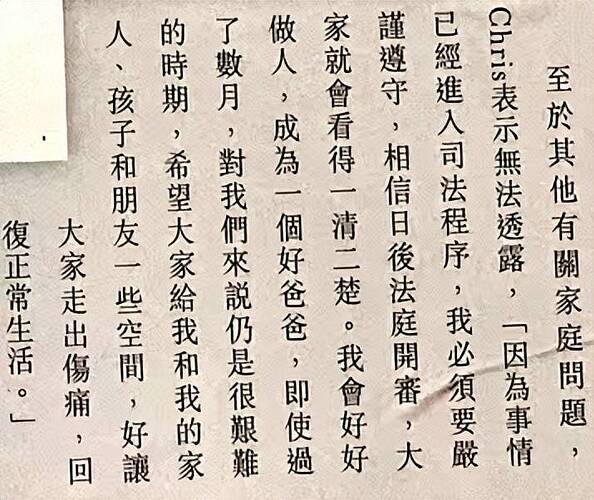 至於其他有關家庭問題，
Chris表示無法透露，「因為事情
已經進入司法程序，我必須要嚴
謹遵守，相信日後法庭開審，大
家就會看得一清二楚。我會好好
做人，成為一個好爸爸，即使過
了數月，對我們來說仍是很艱難
的時期，希望大家給我和我的家
人、孩子和朋友一些空間，好讓
大家走出傷痛，回
復正常生活。」